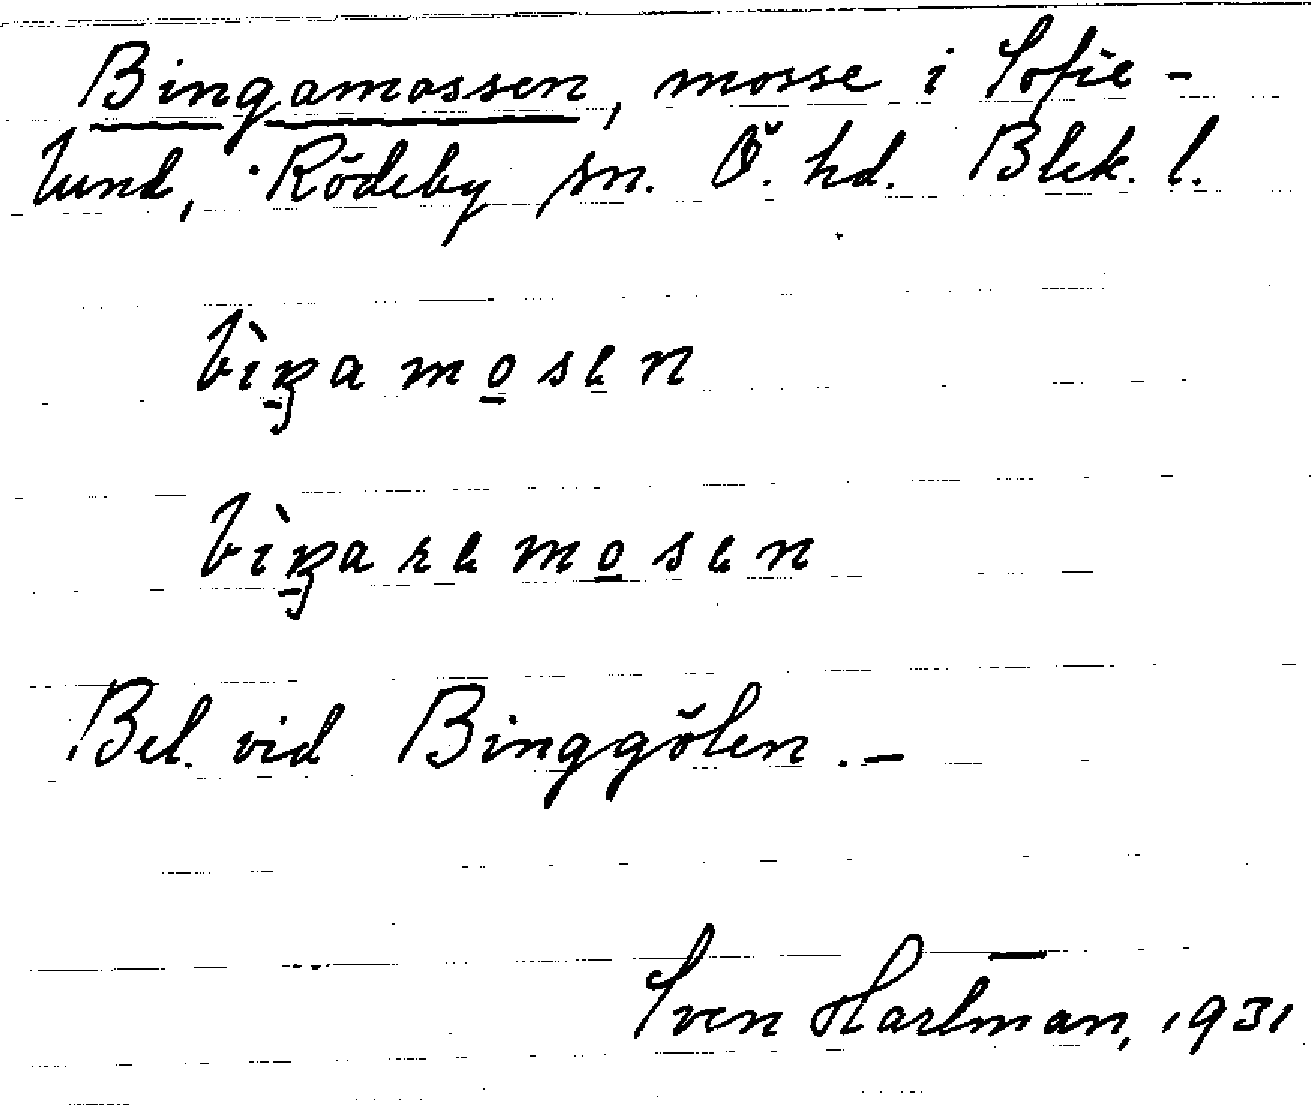 Bingamossen, mosse i Sofie-
lund, Rödeby sn. Ö. hd. Blek. l.
bìŋamosən
bìŋarəmosən
Bel. vid Binggölen. –
Sven Hartman, 1931